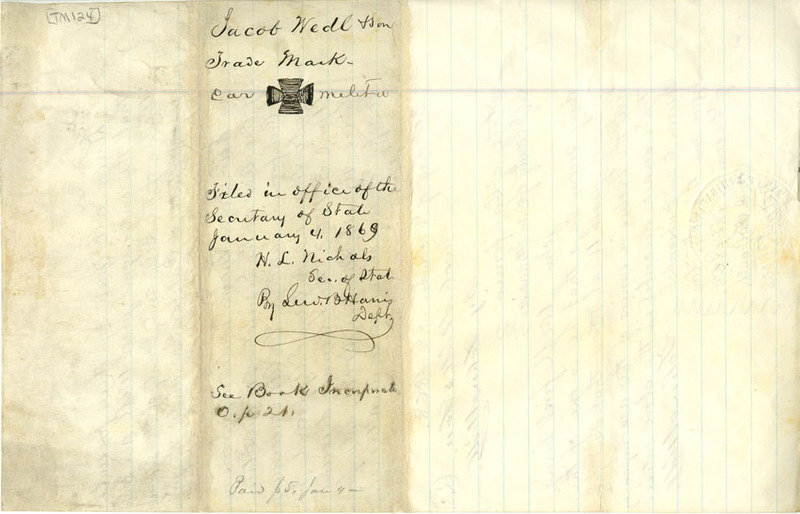 [TM124]
Jacob Wedl & Son
Trade Mark-
Ear militia
Filed in office of the
Secretary of State
January 4, 1869
H. L. Nichols
Sec. of Stat
By Lew. B Harris
Depty
See Book Incorporat
O. p 21.
Paid $5. Jan 4-